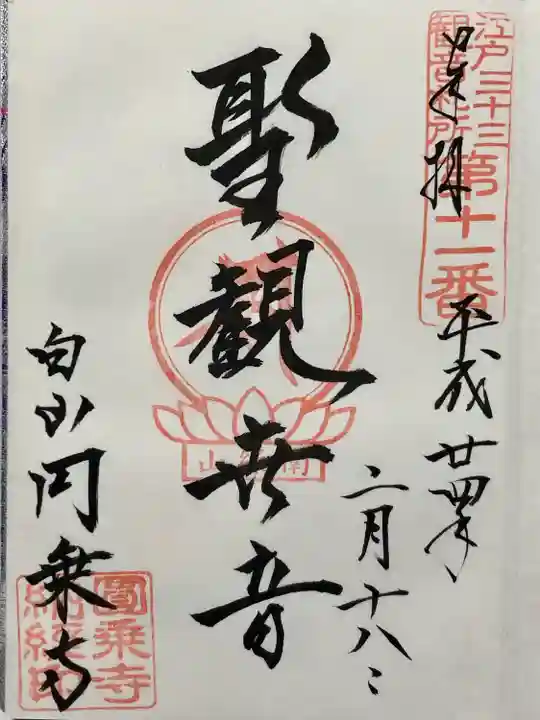 江戸三十三
観音札所
第十一番
奉拝
平成廿四年
二月十八日
聖観世音
南縁山
白山円乗寺
圓乗寺
納経印